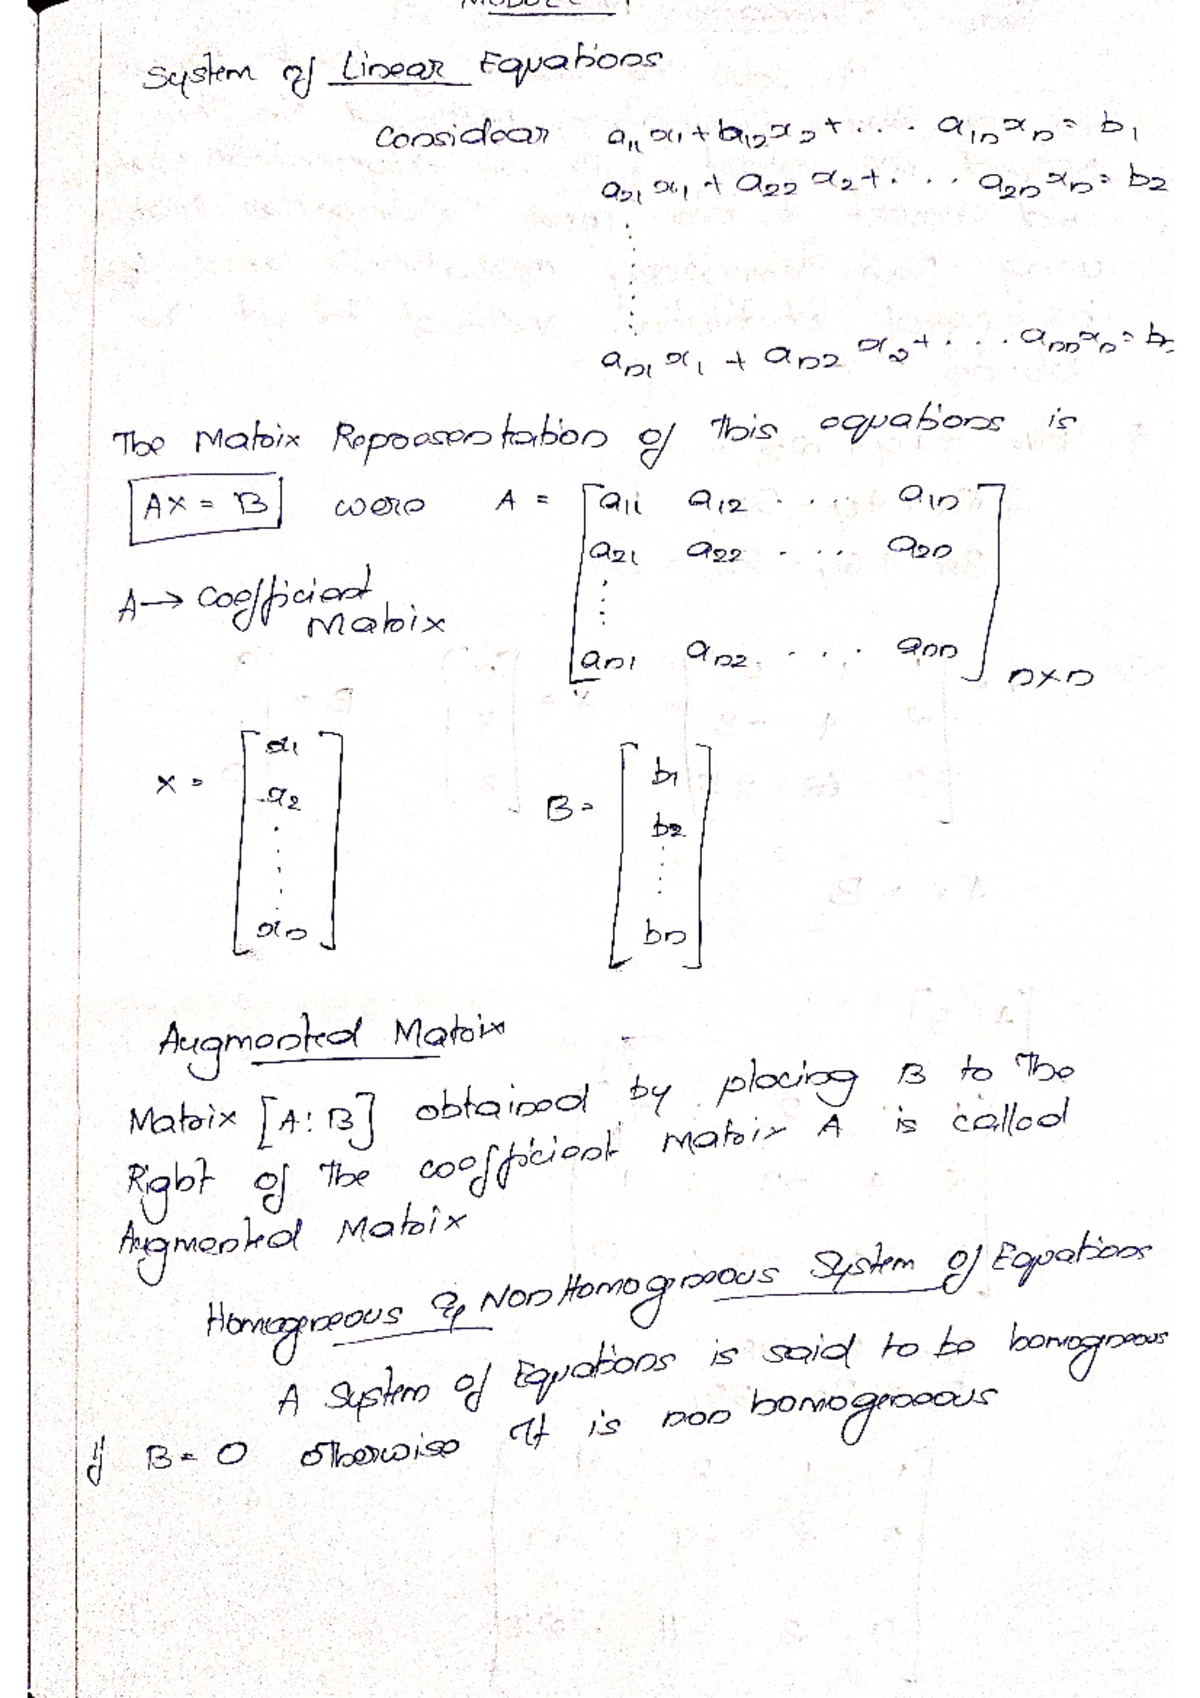 MODULE - 1
System of Linear Equations
Considear a11 x1 + a12 x2 + . . . a1n xn = b1
a21 x1 + a22 x2 + . . . a2n xn = b2
an1 x1 + an2 x2 + . . . ann xn = bn
The Matrix Representation of This equations is
AX = B were A = [ a11 a12 . . . a1n
a21 a22 . . . a2n
A → Coefficient Matrix
an1 an2 . . . ann ] n×n
X = [ x1 x2 . . . xn ] B = [ b1 b2 . . . bn ]
Augmented Matrix
Matrix [A : B] obtained by placing B to The
Right of The coefficient matrix A is called
Augmented Matrix
Homogeneous & Non Homogeneous System of Equations
A System of Equations is said to be homogneous
if B = 0 otherwise It is non homogeneous